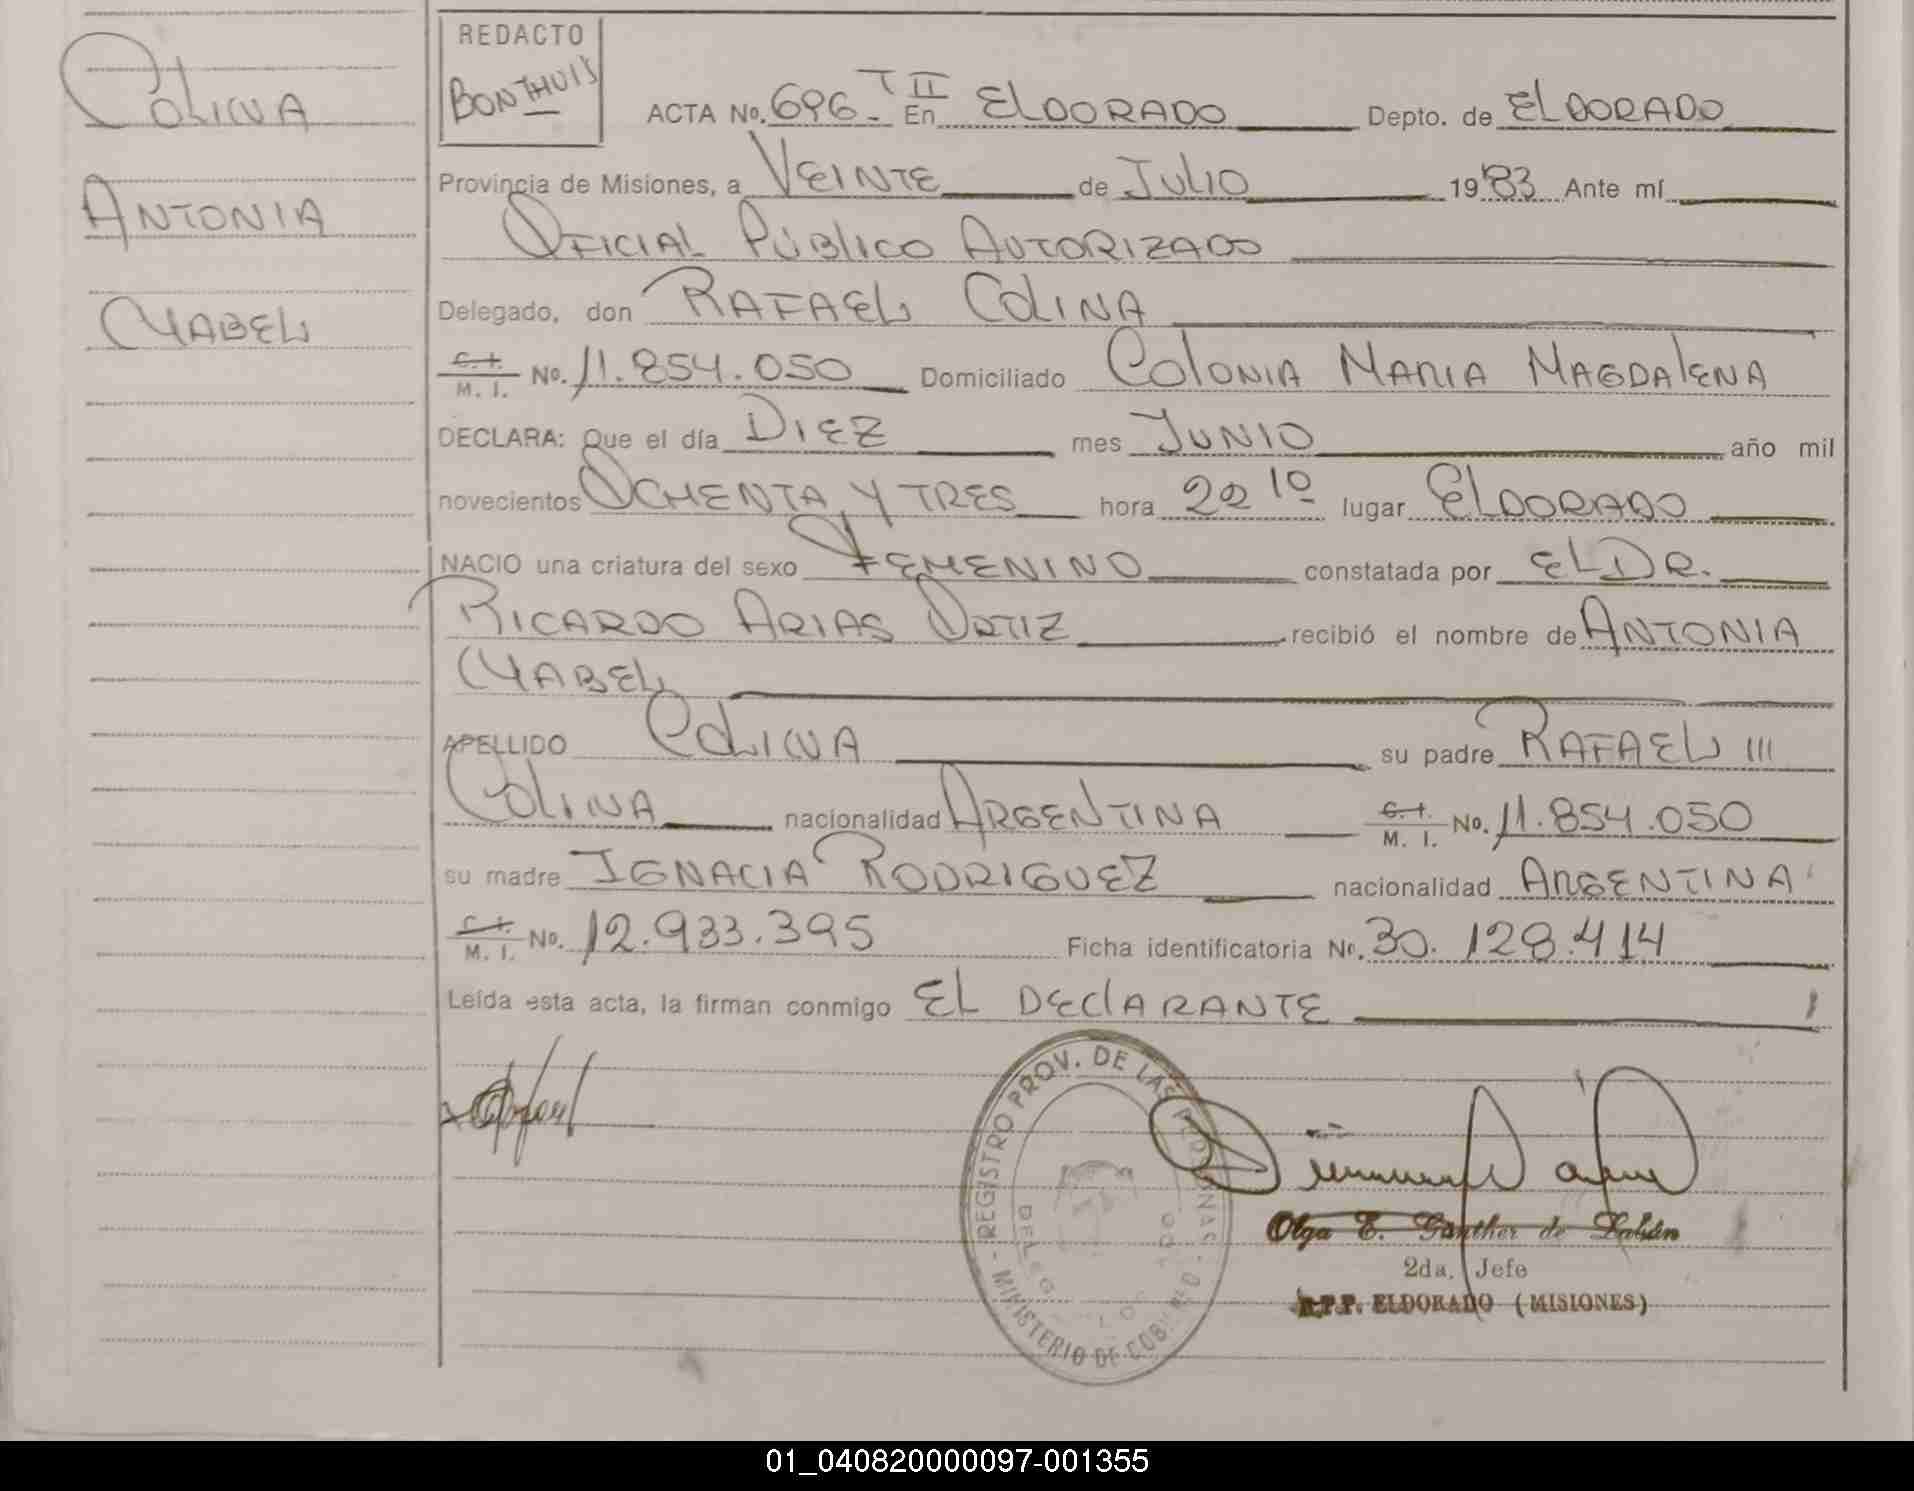 COLINA
ANTONIA
MABEL
REDACTO
BONTHUIS
ACTA No. 696 - T II En ELDORADO Depto. de ELDORADO
Provincia de Misiones, a VEINTE de JULIO 1983 Ante mí
OFICIAL PÚBLICO AUTORIZADO
Delegado, don RAFAEL COLINA
C. I. M. I. No. 11.854.050 Domiciliado COLONIA MARIA MAGDALENA
DECLARA: Que el día DIEZ mes JUNIO año mil
novecientos OCHENTA Y TRES hora 22 10 lugar ELDORADO
NACIO una criatura del sexo FEMENINO constatada por EL DR.
RICARDO ARIAS ORTIZ recibió el nombre de ANTONIA
MABEL
APELLIDO COLINA su padre RAFAEL III
COLINA nacionalidad ARGENTINA C. I. M. I. No. 11.854.050
su madre IGNACIA RODRIGUEZ nacionalidad ARGENTINA
C. I. M. I. No. 12.933.395 Ficha identificatoria No. 30.128.414
Leída esta acta, la firman conmigo EL DECLARANTE
REGISTRO PROV. DE LAS PERSONAS
MINISTERIO DE GOBIERNO
Olga E. Ganther de
2da. Jefe
R.P.P. ELDORADO (MISIONES)
01_040820000097-001355